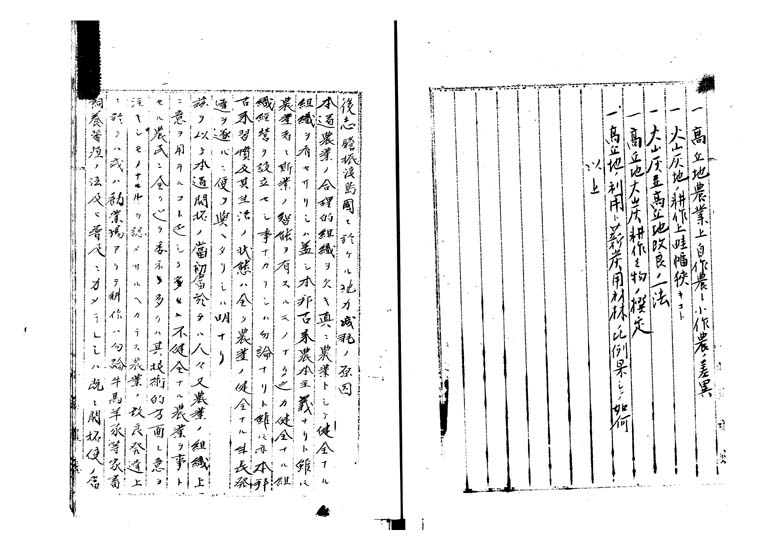 一 高丘地農業上自作農ト小作農ノ差異
一 火山灰地ノ耕作上畦幅狭キコト
一 火山灰並高丘地改良ノ一法
一 高丘地火山灰耕作々物ノ撰定
一 高丘地ノ利用ト薪炭用材林比例果シテ如何
以上
後志膽振渡島國ニ於ケル地力減耗ノ原因
本道農業ノ合理的組織ヲ欠キ真ニ農業トシテ健全ナル
組織ヲ有セサリシハ蓋シ本邦古来農本主義ナリト雖
農業者ニ斯業ノ智能ヲ有スルモノナク之カ健全ナル組
織経営ヲ設立セシ事ナカリシハ勿論ナリト雖亦本邦
古来習慣及其生活ノ状態ハ全ク農業ノ健全ナル生長発
達ヲ遂ルニ便ヲ與ヘタリシハ明ナリ
故ヲ以テ本道開拓ノ當初當於テ人々又農業ノ組織上
ニ意ヲ用ヰルコト
不健全ナル農業ヲ事ト
セル農民ニ全ク之ヲ委ネ多クハ其技術的方面ニ意ヲ
注キシモノナルヲ認メサルヘカラス農業ノ改良発達上
ニ於テハ或ハ勧業場アリテ耕作ハ勿論牛馬羊豕等家畜
飼養蕃殖ノ法及ヒ普及ニカメテシハ既ニ開拓使ノ當